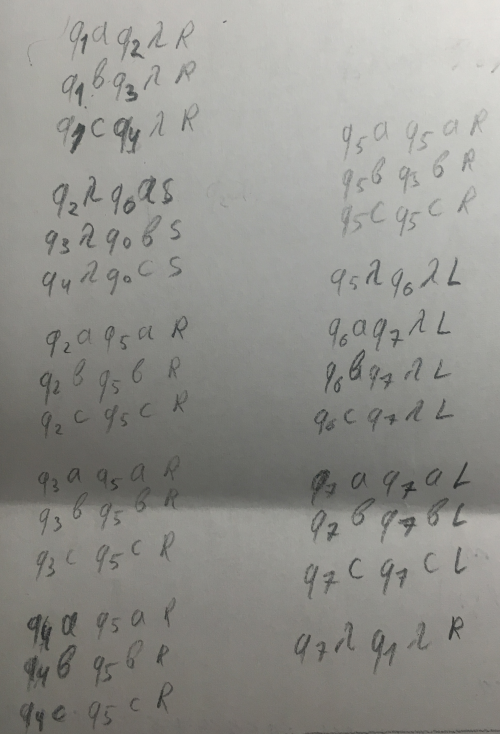 q1 a q2 λ R
q1 в q3 λ R
q1 c q4 λ R
q2 λ q0 a S
q3 λ q0 в S
q4 λ q0 c S
q2 a q5 a R
q2 в q5 в R
q2 c q5 c R
q3 a q5 a R
q3 в q5 в R
q3 c q5 c R
q4 a q5 a R
q4 в q5 в R
q4 c q5 c R
q5 a q5 a R
q5 в q5 в R
q5 c q5 c R
q5 λ q6 λ L
q6 a q7 λ L
q6 в q7 λ L
q6 c q7 λ L
q7 a q7 a L
q7 в q7 в L
q7 c q7 c L
q7 λ q1 λ R